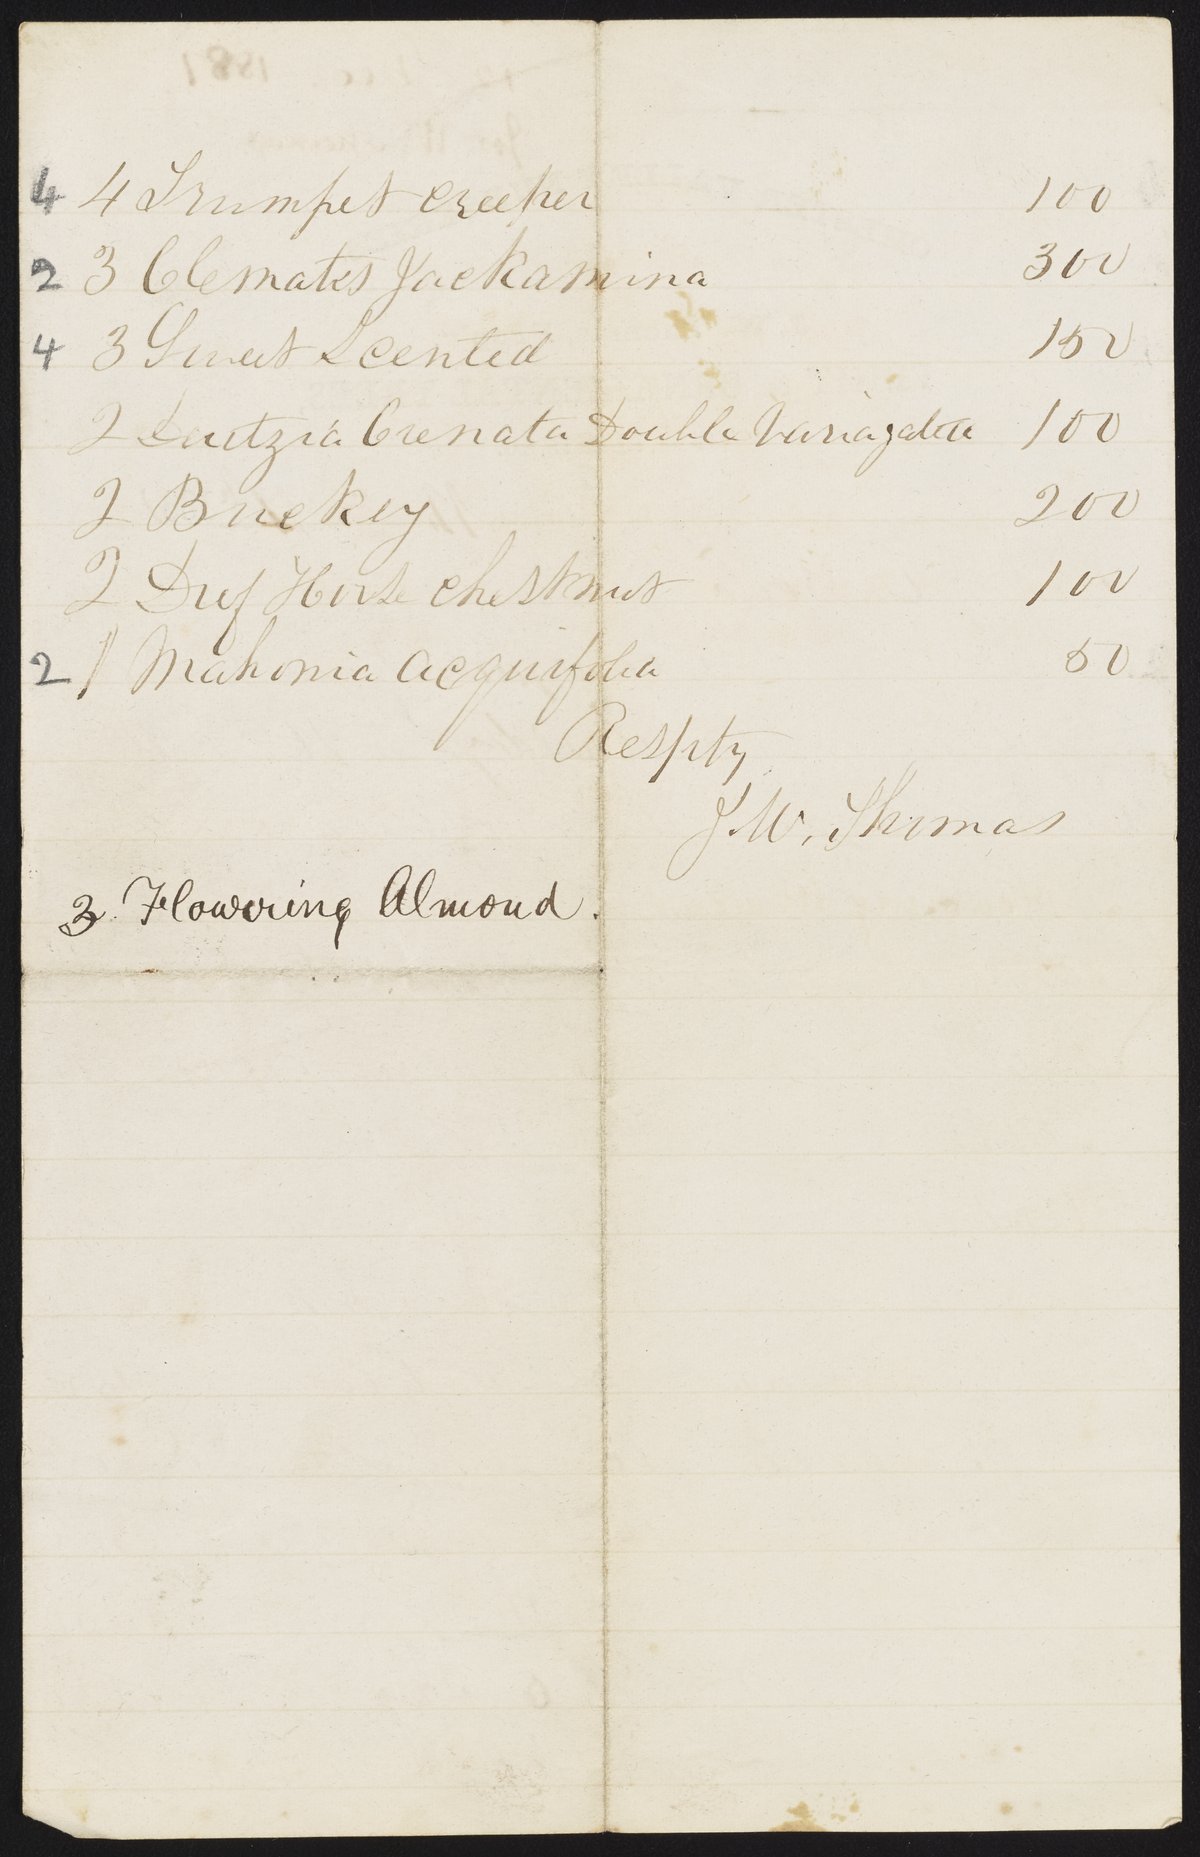 4 4 Trumpet creeper 100
2 3 Clemates Jackamina 300
4 3 Sweet Scented 150
2 Deutzia Crenata Double Variagatea 100
2 Buckey 200
2 Druf Horse chestnut 100
2 1 Mahonia acquifolia 50
Respty
J. W. Thomas
3 Flowering Almond.